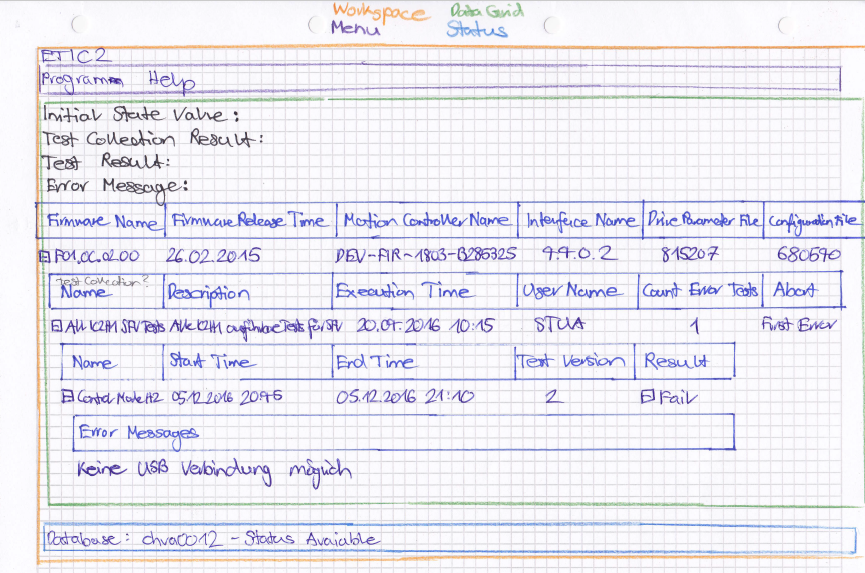 Workspace Data Grid
Menu Status
ETIC2
Programm Help
Initial State Value:
Test Collection Result:
Test Result:
Error Message:
Firmware Name Firmware Release Time Motion Controller Name Interface Name Drive Parameter File Configuration File
F01.06.02.00 26.02.2015 DEV-FIR-1803-B285325 4.4.0.2 815207 680570
Test Collection?
Name Description Execution Time User Name Count Error Tests Abort
All K2H1 SFV Tests Alle K2H1 ausführbare Tests für SFV 20.07.2016 10:15 STUA 1 First Error
Name Start Time End Time Test Version Result
Control Mode H2 05.12.2016 2045 05.12.2016 21:10 2 Fail
Error Messages
Keine USB Verbindung möglich
Database: chva0012 - Status Avaiable